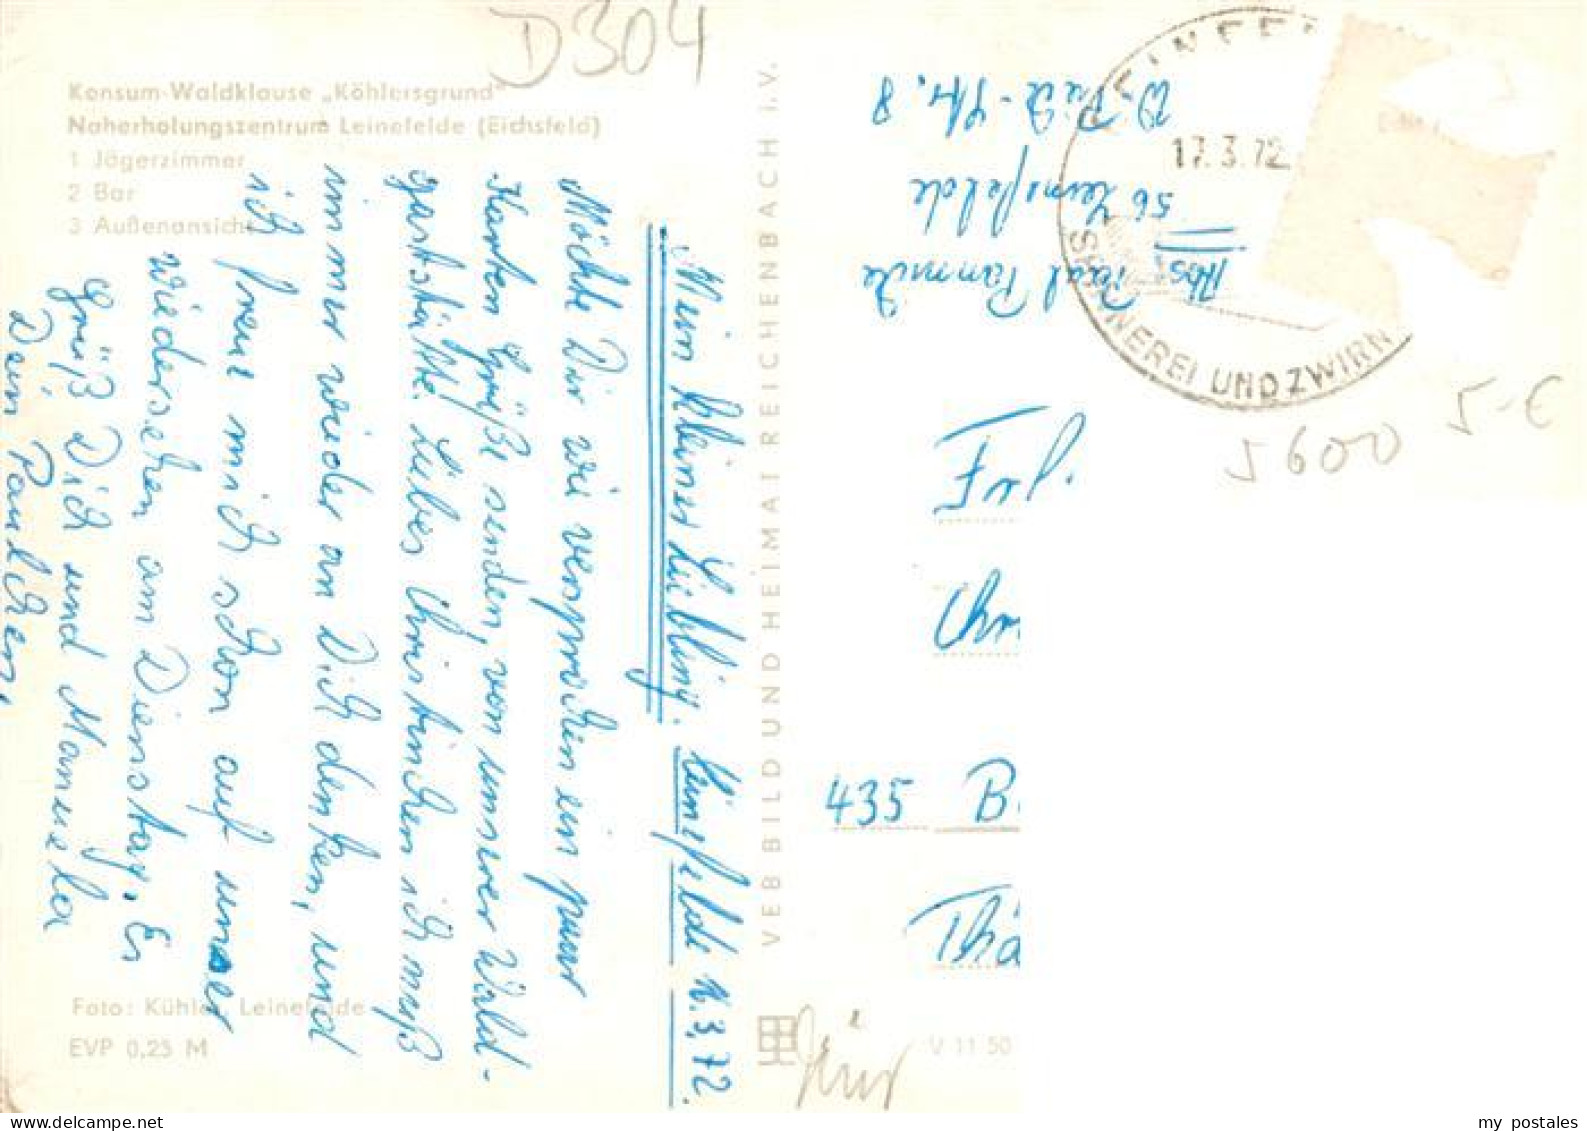 D304
Konsum-Waldklause „Köhlersgrund"
Naherholungszentrum Leinefelde (Eichsfeld)
1 Jägerzimmer
2 Bar
3 Außenansicht
Mein kleiner Liebling. Leinefelde 16.3.72.
Möchte Dir wie versprochen ein paar
Karten Grüße senden, von unserer Wald-
gaststätte. Liebes Christinchen ich muß
immer wieder an Dich denken, und
ich freue mich schon auf unser
wiedersehen am Dienstag. Es
grüß Dich und Manuela
Dein Paulchen.
Foto: Kühler, Leinefelde
EVP 0,25 M
VEB BILD UND HEIMAT REICHENBACH I. V.
V 11 50
Abs Paul
56 Leinefelde
W-Pieck-Str. 8
17.3.72
SPINNEREI UND ZWIRN
5600 5-€
Chr
435 B
my postales